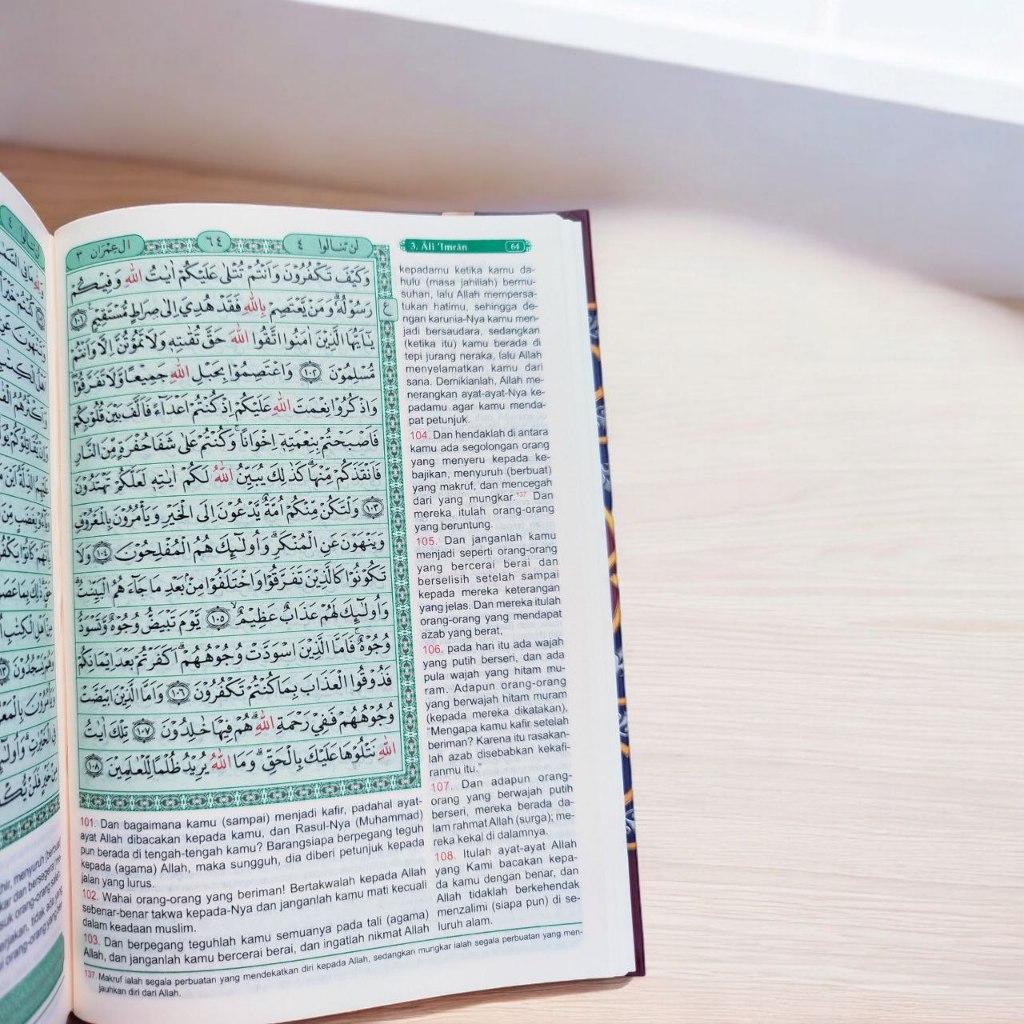 اٰل عِمْرَان ٣
٦٤
لن تنالوا ٤
وَكَيْفَ تَكْفُرُوْنَ وَاَنْتُمْ تُتْلٰى عَلَيْكُمْ اٰيٰتُ اللّٰهِ وَفِيْكُمْ
رَسُوْلُهٗ ۗ وَمَنْ يَّعْتَصِمْ بِاللّٰهِ فَقَدْ هُدِيَ اِلٰى صِرَاطٍ مُّسْتَقِيْمٍ ١٠١
يٰٓاَيُّهَا الَّذِيْنَ اٰمَنُوا اتَّقُوا اللّٰهَ حَقَّ تُقٰىتِهٖ وَلَا تَمُوْتُنَّ اِلَّا وَاَنْتُمْ
مُّسْلِمُوْنَ ١٠٢ وَاعْتَصِمُوْا بِحَبْلِ اللّٰهِ جَمِيْعًا وَّلَا تَفَرَّقُوْا ۖ
وَاذْكُرُوْا نِعْمَتَ اللّٰهِ عَلَيْكُمْ اِذْ كُنْتُمْ اَعْدَاۤءً فَاَلَّفَ بَيْنَ قُلُوْبِكُمْ
فَاَصْبَحْتُمْ بِنِعْمَتِهٖٓ اِخْوَانًا ۚ وَكُنْتُمْ عَلٰى شَفَا حُفْرَةٍ مِّنَ النَّارِ
فَاَنْقَذَكُمْ مِّنْهَا ۗ كَذٰلِكَ يُبَيِّنُ اللّٰهُ لَكُمْ اٰيٰتِهٖ لَعَلَّكُمْ تَهْتَدُوْنَ
١٠٣ وَلْتَكُنْ مِّنْكُمْ اُمَّةٌ يَّدْعُوْنَ اِلَى الْخَيْرِ وَيَأْمُرُوْنَ بِالْمَعْرُوْفِ
وَيَنْهَوْنَ عَنِ الْمُنْكَرِ ۗ وَاُولٰۤىِٕكَ هُمُ الْمُفْلِحُوْنَ ١٠٤ وَلَا
تَكُوْنُوْا كَالَّذِيْنَ تَفَرَّقُوْا وَاخْتَلَفُوْا مِنْۢ بَعْدِ مَا جَاۤءَهُمُ الْبَيِّنٰتُ ۗ
وَاُولٰۤىِٕكَ لَهُمْ عَذَابٌ عَظِيْمٌ ١٠٥ يَّوْمَ تَبْيَضُّ وُجُوْهٌ وَّتَسْوَدُّ
وُجُوْهٌ ۚ فَاَمَّا الَّذِيْنَ اسْوَدَّتْ وُجُوْهُهُمْ ۗ اَكَفَرْتُمْ بَعْدَ اِيْمَانِكُمْ
فَذُوْقُوا الْعَذَابَ بِمَا كُنْتُمْ تَكْفُرُوْنَ ١٠٦ وَاَمَّا الَّذِيْنَ ابْيَضَّتْ
وُجُوْهُهُمْ فَفِيْ رَحْمَةِ اللّٰهِ ۗ هُمْ فِيْهَا خٰلِدُوْنَ ١٠٧ تِلْكَ اٰيٰتُ
اللّٰهِ نَتْلُوْهَا عَلَيْكَ بِالْحَقِّ ۗ وَمَا اللّٰهُ يُرِيْدُ ظُلْمًا لِّلْعٰلَمِيْنَ ١٠٨
101. Dan bagaimana kamu (sampai) menjadi kafir, padahal ayat-
ayat Allah dibacakan kepada kamu, dan Rasul-Nya (Muhammad)
pun berada di tengah-tengah kamu? Barangsiapa berpegang teguh
kepada (agama) Allah, maka sungguh, dia diberi petunjuk kepada
jalan yang lurus.
102. Wahai orang-orang yang beriman! Bertakwalah kepada Allah
sebenar-benar takwa kepada-Nya dan janganlah kamu mati kecuali
dalam keadaan muslim.
103. Dan berpegang teguhlah kamu semuanya pada tali (agama)
Allah, dan janganlah kamu bercerai berai, dan ingatlah nikmat Allah
3. Āli 'Imrān 64
kepadamu ketika kamu da-
hulu (masa jahiliah) bermu-
suhan, lalu Allah mempersa-
tukan hatimu, sehingga de-
ngan karunia-Nya kamu men-
jadi bersaudara, sedangkan
(ketika itu) kamu berada di
tepi jurang neraka, lalu Allah
menyelamatkan kamu dari
sana. Demikianlah, Allah me-
nerangkan ayat-ayat-Nya ke-
padamu agar kamu menda-
pat petunjuk.
104. Dan hendaklah di antara
kamu ada segolongan orang
yang menyeru kepada ke-
bajikan, menyuruh (berbuat)
yang makruf, dan mencegah
dari yang mungkar.137 Dan
mereka itulah orang-orang
yang beruntung.
105. Dan janganlah kamu
menjadi seperti orang-orang
yang bercerai berai dan
berselisih setelah sampai
kepada mereka keterangan
yang jelas. Dan mereka itulah
orang-orang yang mendapat
azab yang berat,
106. pada hari itu ada wajah
yang putih berseri, dan ada
pula wajah yang hitam mu-
ram. Adapun orang-orang
yang berwajah hitam muram
(kepada mereka dikatakan),
"Mengapa kamu kafir setelah
beriman? Karena itu rasakan-
lah azab disebabkan kekafi-
ranmu itu."
107. Dan adapun orang-
orang yang berwajah putih
berseri, mereka berada da-
lam rahmat Allah (surga); me-
reka kekal di dalamnya.
108. Itulah ayat-ayat Allah
yang Kami bacakan kepa-
da kamu dengan benar, dan
Allah tidaklah berkehendak
menzalimi (siapa pun) di se-
luruh alam.
137 Makruf ialah segala perbuatan yang mendekatkan diri kepada Allah, sedangkan mungkar ialah segala perbuatan yang men-
jauhkan diri dari Allah.